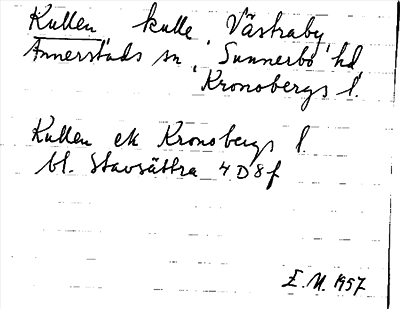 Kullen, kulle, Västraby,
Annerstads sn, Sunnerbo hd,
Kronobergs l.
Kullen ek Kronobergs l.
bl. Stavsättra 4D8f
E.N. 1957